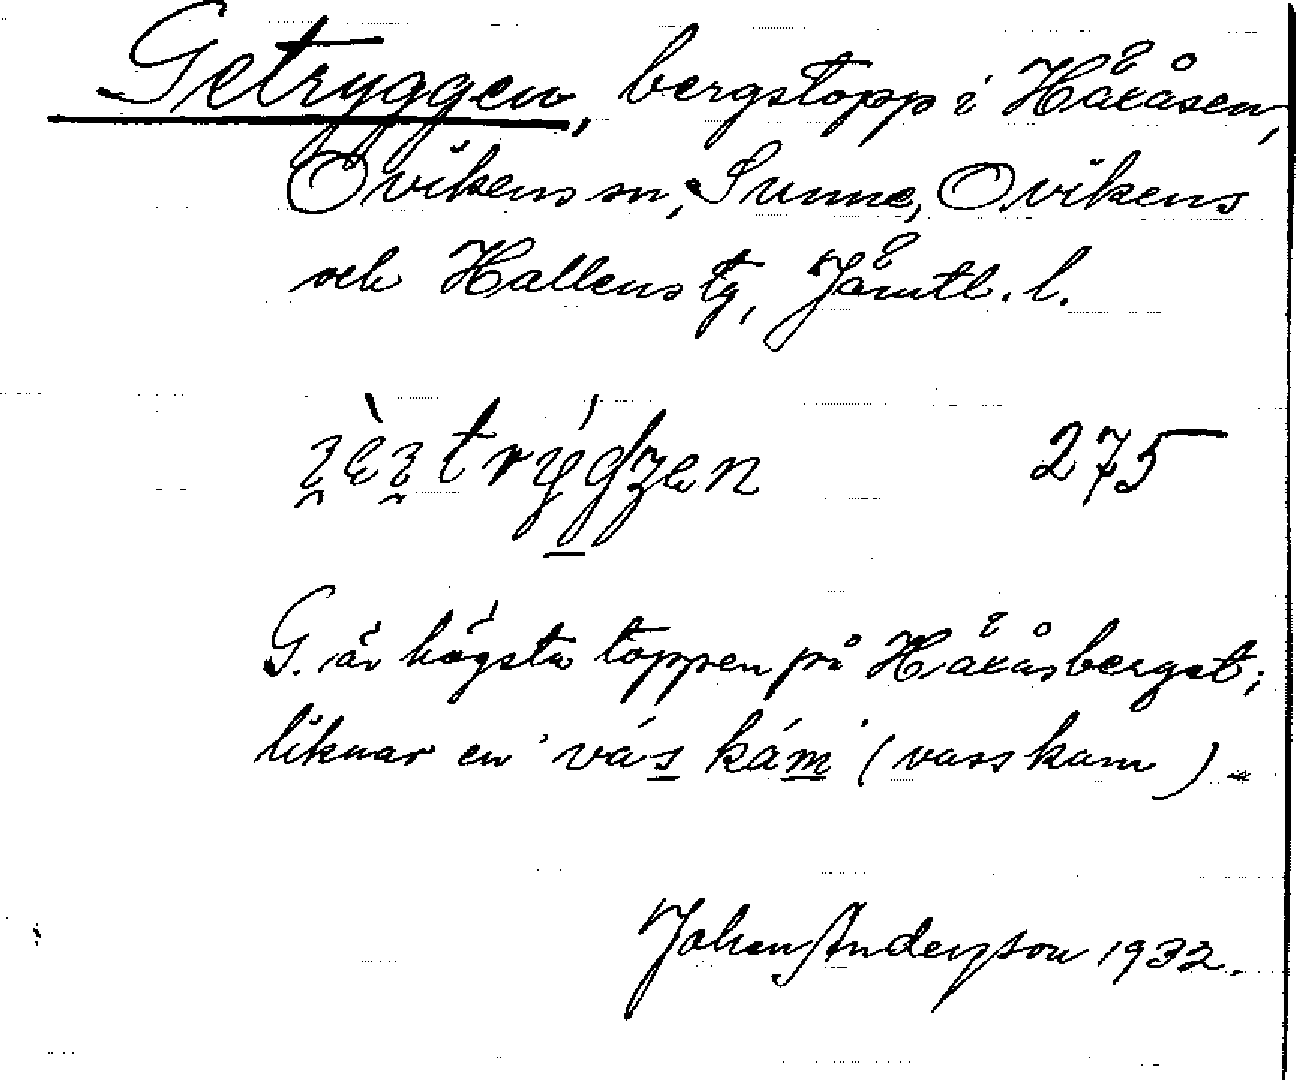 Getryggen, bergstopp i Häxåsen,
Ovikens sn, Sunne, Ovikens
och Hallens tg, Jämtl. l.
275
G. är högsta toppen på Häxåsberget;
liknar en vás kám (vass kam).
Johan Anderson 1932.